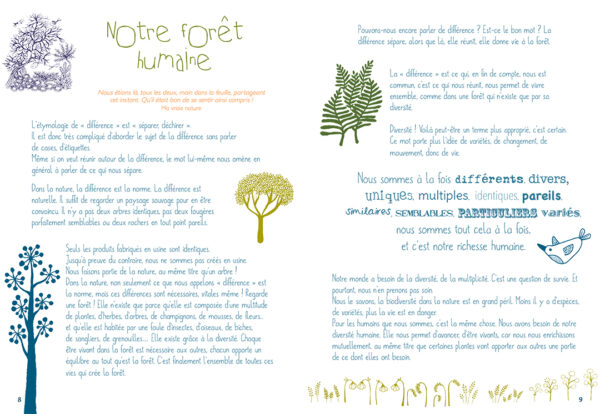 Notre forêt
humaine
Nous étions là tous les deux, main dans la feuille, partageant
cet instant. Qu'il était bon de se sentir ainsi compris !
Ma vraie nature
L'étymologie de « différence » est « séparer, déchirer ».
Il est donc très compliqué d'aborder le sujet de la différence sans parler
de cases, d'étiquettes.
Même si on veut réunir autour de la différence, le mot lui-même nous amène en
général à parler de ce qui nous sépare.
Dans la nature, la différence est la norme. La différence est
naturelle. Il suffit de regarder un paysage sauvage pour en être
convaincu. Il n'y a pas deux arbres identiques, pas deux fougères
parfaitement semblables ou deux rochers en tout point pareils.
Seuls les produits fabriqués en usine sont identiques.
Jusqu'à preuve du contraire, nous ne sommes pas créés en usine.
Nous faisons partie de la nature, au même titre qu'un arbre !
Dans la nature, non seulement ce que nous appelons « différence » est
la norme, mais ces différences sont nécessaires, vitales même ! Regarde
une forêt ! Elle n'existe que parce qu'elle est composée d'une multitude
de plantes, d'herbes, d'arbres, de champignons, de mousses, de fleurs...
et qu'elle est habitée par une foule d'insectes, d'oiseaux, de biches,
de sangliers, de grenouilles... Elle existe grâce à la diversité. Chaque
être vivant dans la forêt est nécessaire aux autres, chacun apporte un
équilibre au tout qu'est la forêt. C'est finalement l'ensemble de toutes ces
vies qui crée la forêt.
8
Pouvons-nous encore parler de différence ? Est-ce le bon mot ? La
différence sépare, alors que là, elle réunit, elle donne vie à la forêt.
La « différence » est ce qui, en fin de compte, nous est
commun, c'est ce qui nous réunit, nous permet de vivre
ensemble, comme dans une forêt qui n'existe que par sa
diversité.
Diversité ! Voilà peut-être un terme plus approprié, c'est certain.
Ce mot porte plus l'idée de variétés, de changement, de
mouvement, donc de vie.
Nous sommes à la fois différents, divers,
uniques, multiples, identiques, pareils,
similaires, SEMBLABLES, PARTICULIERS, variés,
nous sommes tout cela à la fois,
et c'est notre richesse humaine.
Notre monde a besoin de la diversité, de la multiplicité. C'est une question de survie. Et
pourtant, nous n'en prenons pas soin.
Nous le savons, la biodiversité dans la nature est en grand péril. Moins il y a d'espèces,
de variétés, plus la vie est en danger.
Pour les humains que nous sommes, c'est la même chose. Nous avons besoin de notre
diversité humaine. Elle nous permet d'avancer, d'être vivants, car nous nous enrichissons
mutuellement, au même titre que certaines plantes vont apporter aux autres une partie
de ce dont elles ont besoin.
9